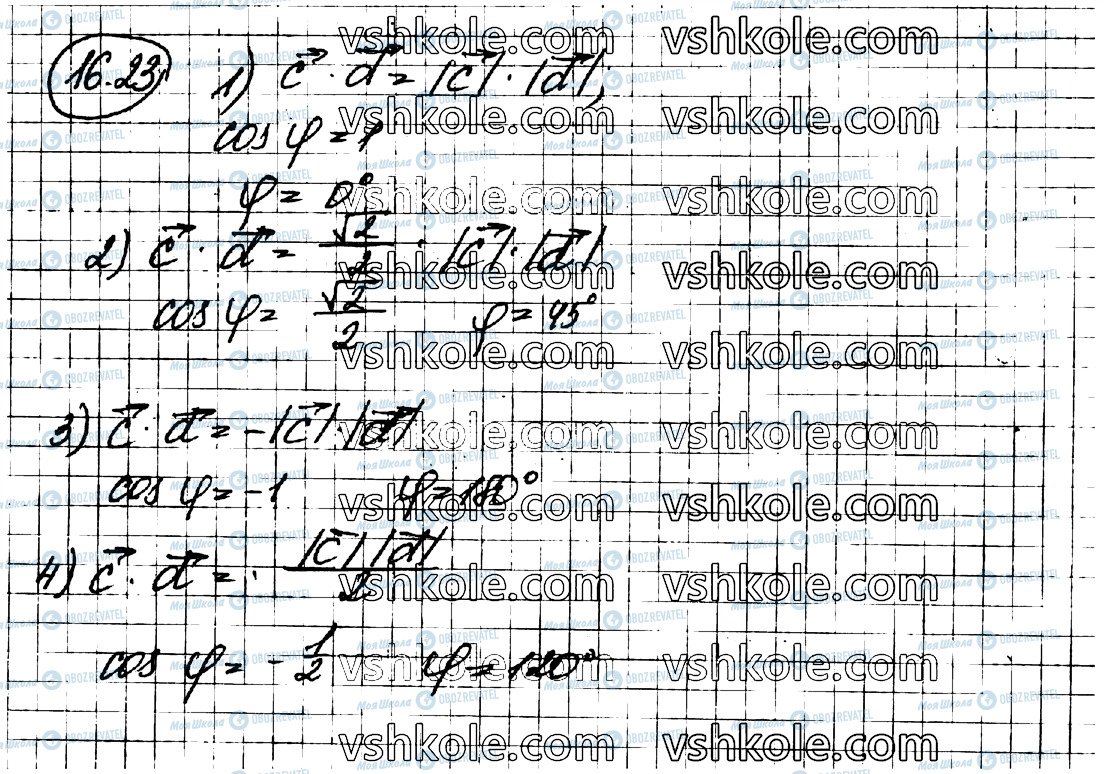 16.23 1) c⃗ · d⃗ = |c⃗| · |d⃗|;
cos φ = 1
φ = 0°
2) c⃗ · d⃗ = √2/2 · |c⃗| · |d⃗|
cos φ = √2/2 φ = 45°
3) c⃗ · d⃗ = -|c⃗| · |d⃗|
cos φ = -1 φ = 180°
4) c⃗ · d⃗ = · |c⃗| |d⃗|/2
cos φ = -1/2 φ = 120°
vshkole.com vshkole.com
vshkole.com vshkole.com
vshkole.com vshkole.com
vshkole.com vshkole.com
vshkole.com vshkole.com
vshkole.com vshkole.com
vshkole.com vshkole.com
vshkole.com vshkole.com
vshkole.com vshkole.com
vshkole.com vshkole.com
Моя Школа OBOZREVATEL